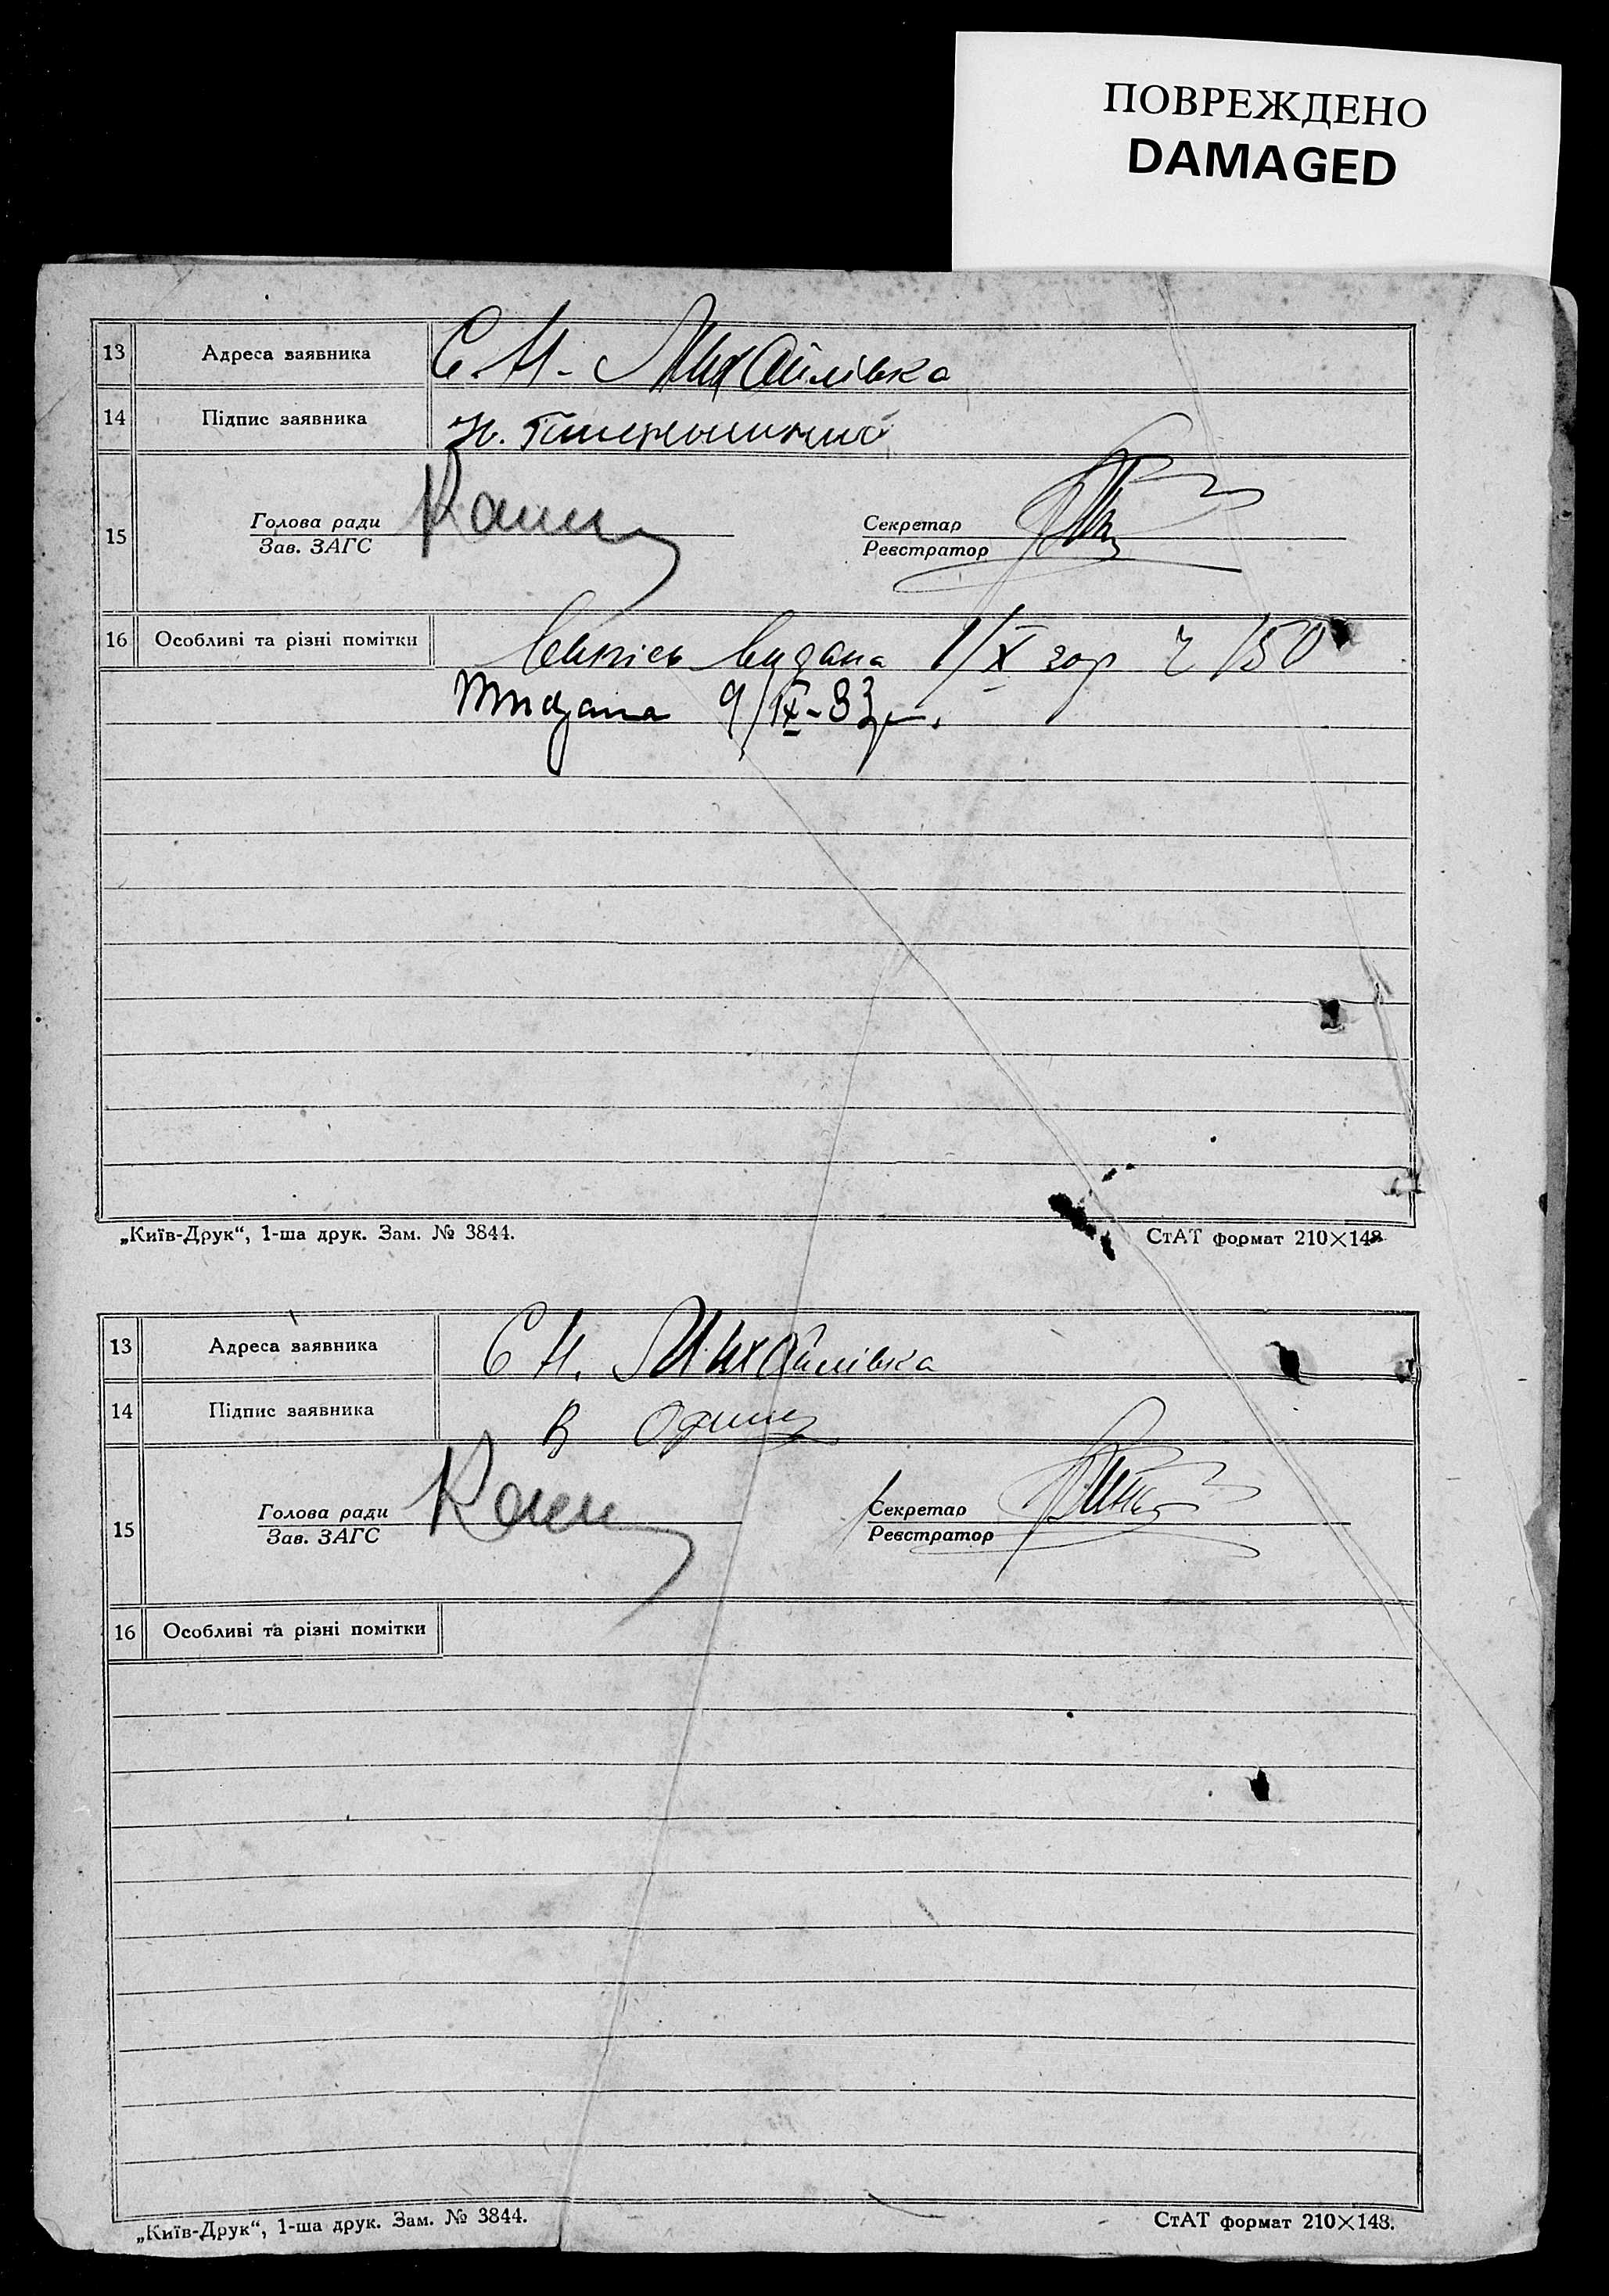 ПОВРЕЖДЕНО
DAMAGED
13 Адреса заявника С. Н- Михайлівка
14 Підпис заявника
15 Голова ради Секретар
Зав. ЗАГС Реєстратор
16 Особливі та різні помітки Випісь видана 1/X 150
видана 9/IX-83р.
„Київ-Друк“, 1-ша друк. Зам. № 3844. СтАТ формат 210×148
13 Адреса заявника С Н. Михайлівка
14 Підпис заявника В
15 Голова ради Секретар
Зав. ЗАГС Реєстратор
16 Особливі та різні помітки
„Київ-Друк“, 1-ша друк. Зам. № 3844. СтАТ формат 210×148.